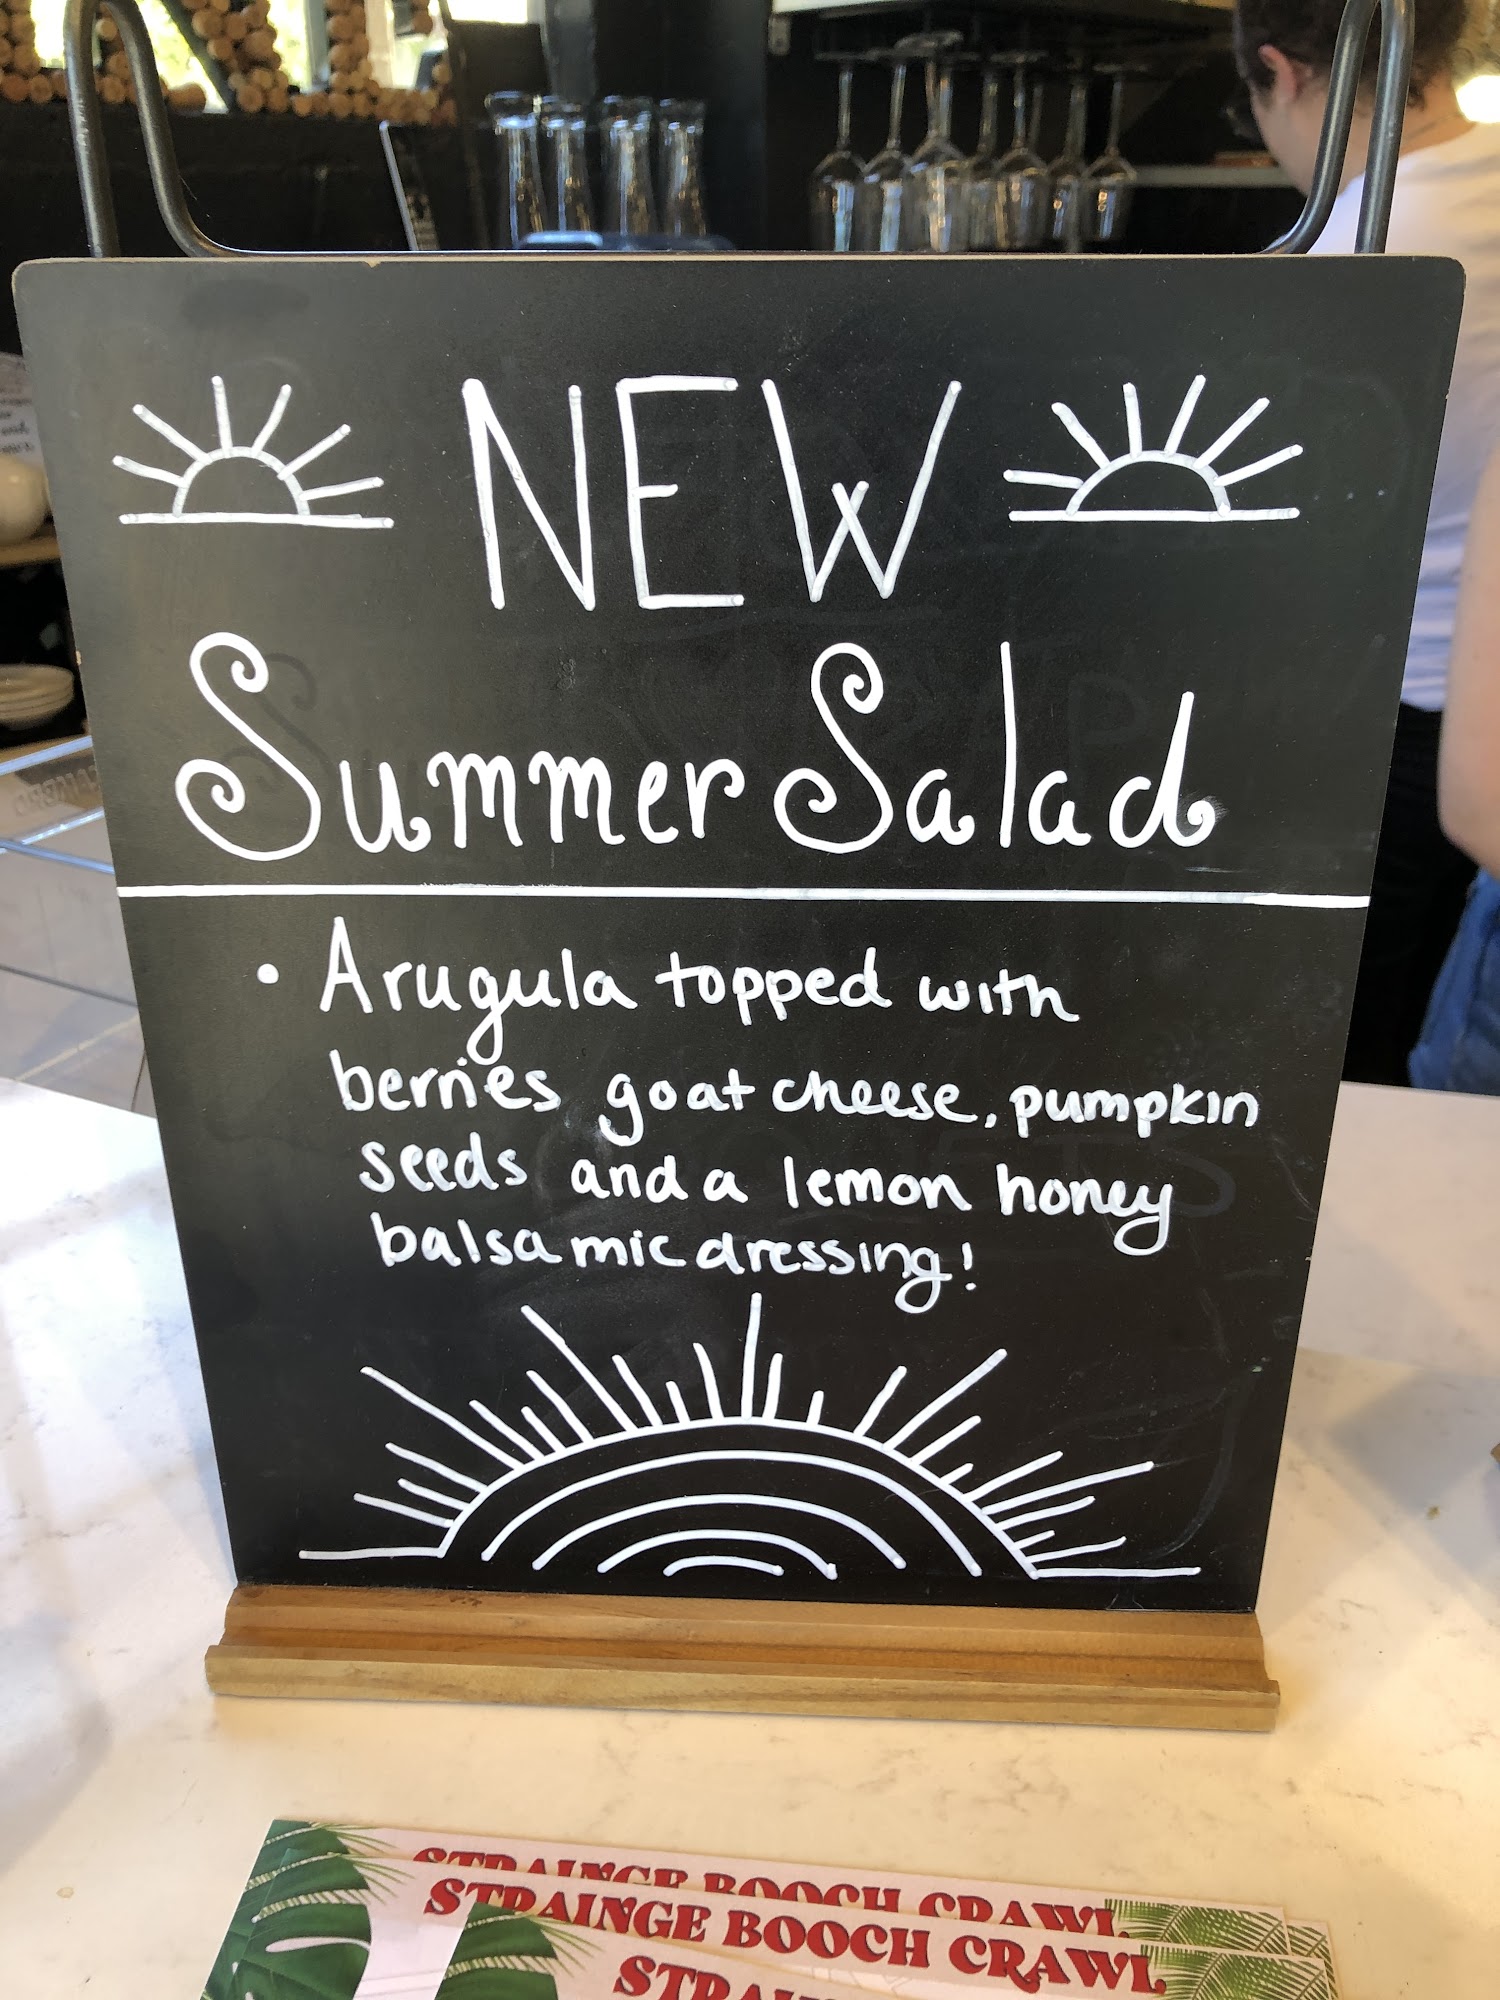 NEW
Summer Salad
• Arugula topped with
berries goat cheese, pumpkin
seeds and a lemon honey
balsamic dressing!
STRAINGE BOOCH CRAWL
STRAINGE BOOCH CRAWL